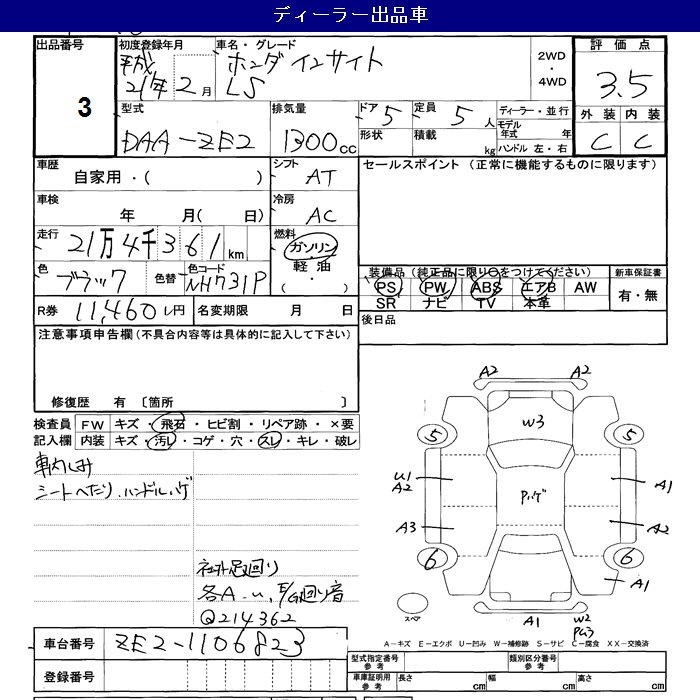 ディーラー出品車
出品番号 3
初度登録年月 平成 21年 2月
車名・グレード ホンダ インサイト LS
2WD ・ 4WD
評価点 3.5
外装 内装
C C
型式 DAA-ZE2
排気量 1300cc
ドア 5 定員 5人
形状 積載 kg
ディーラー・並行
モデル年式 年
ハンドル 左・右
車歴 自家用・( )
シフト AT
セールスポイント (正常に機能するものに限ります)
車検 年 月( 日)
冷房 AC
走行 21万4千361km
燃料 ガソリン・軽油・( )
色 ブラック 色替 色コード NH731P
装備品 (純正品に限り○をつけてください) 新車保証書
PS PW ABS エアB AW 有・無
SR ナビ TV 本革
R券 11,460円 名変期限 月 日
後日品
注意事項申告欄(不具合内容等は具体的に記入して下さい)
修復歴 有 〔箇所 〕
検査員 FW キズ・飛石・ヒビ割・リペア跡・×要
記入欄 内装 キズ・汚レ・コゲ・穴・スレ・キレ・破レ
車内しみ
シートへたり.ハンドルハゲ
社外足廻り
各A-u,E/G廻り音
@214362
A2 A2
W3
5 5
U1 A2
Pハゲ
A1
A3
A2
6 6
A1
スペア
A1
W2
A-キズ E-エクボ U-凹み W-補修跡 S-サビ C-腐食 XX-交換済
車台番号 ZE2-1106823
登録番号
型式指定番号 参考 類別区分番号 参考
車庫証明用 参考 長さ cm 幅 cm 高さ cm